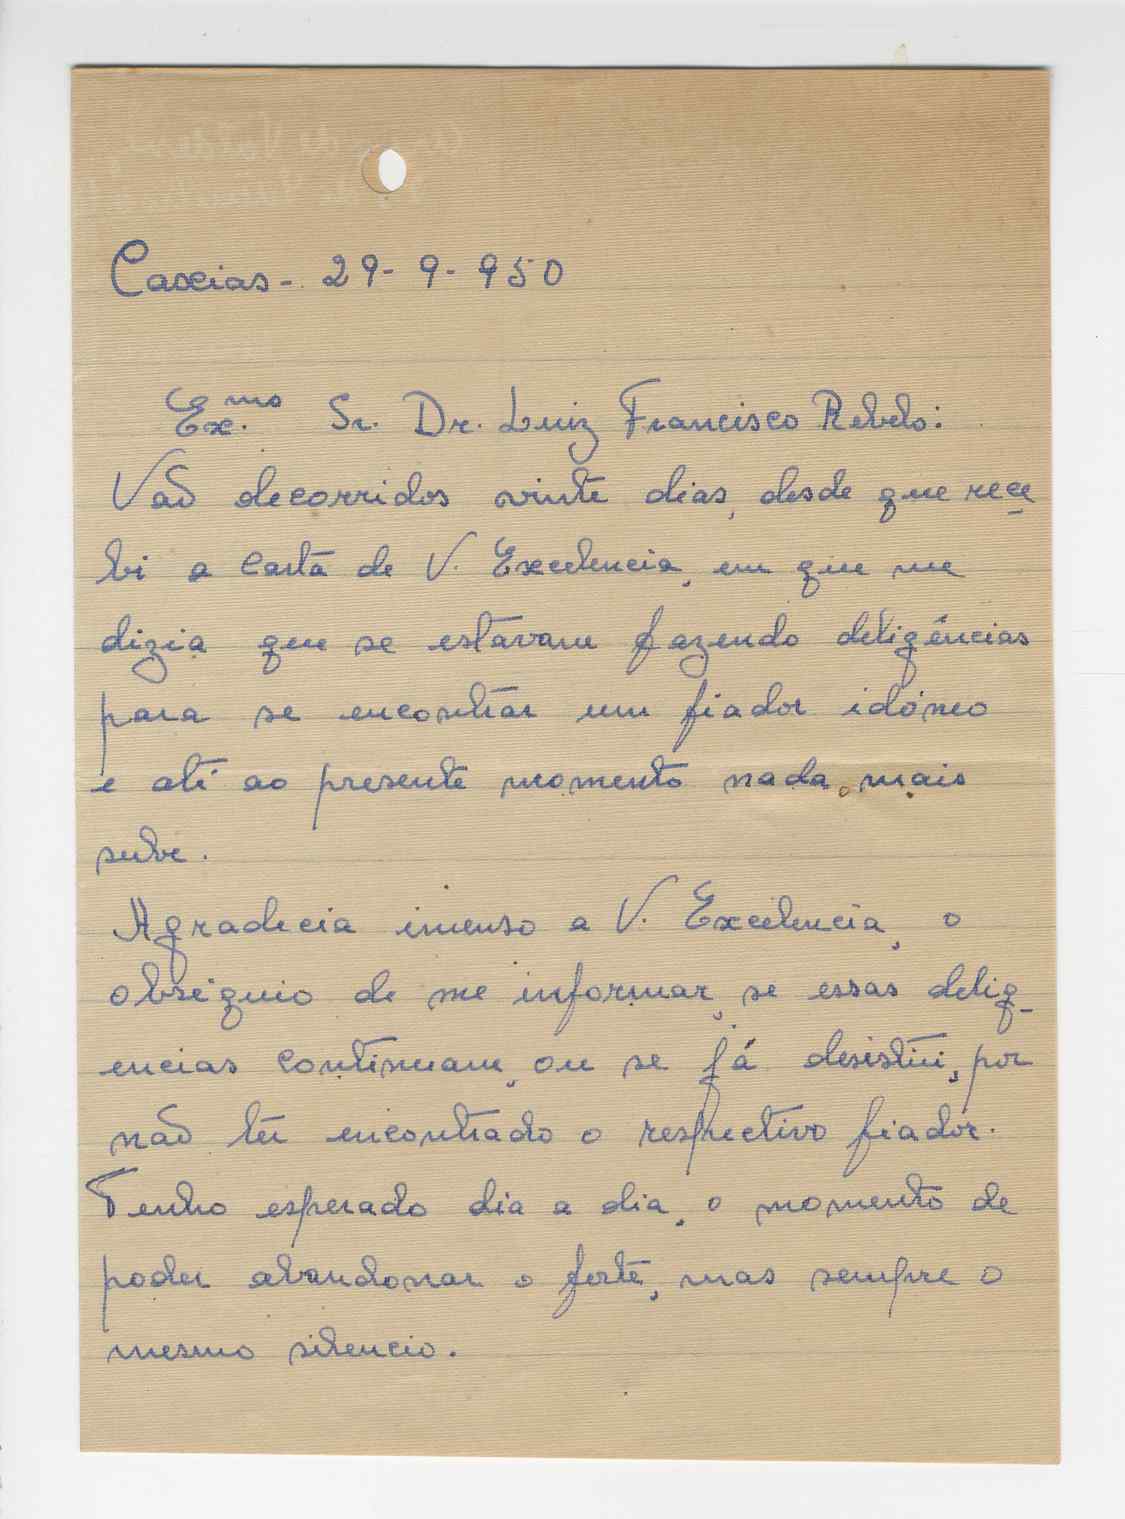 Caxias - 29 - 9 - 950
Ex.mo Sr. Dr. Luiz Francisco Rebelo:
Vão decorridos vinte dias, desde que rece
bi a carta de V. Excelencia, em que me
dizia que se estavam fazendo deligências
para se encontrar um fiador idóneo
e até ao presente momento nada, mais
sube.
Agradecia imenso a V. Excelencia, o
obséquio de me informar, se essas delig_
encias continuam, ou se já desistiu, por
não ter encontrado o respectivo fiador.
Tenho esperado dia a dia, o momento de
poder abandonar o forte, mas sempre o
mesmo silencio.